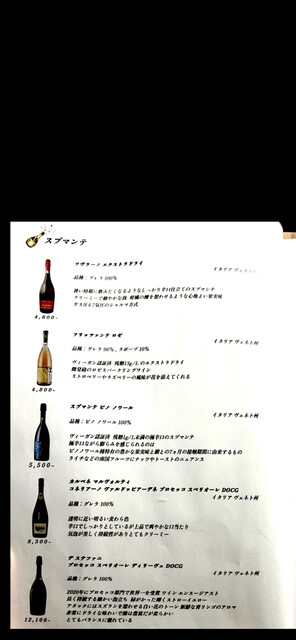 スプマンテ
マヴラーノ エクストラドライ
イタリア ヴェネト州
品種：グレラ 100%
暑い時期に飲みたくなるようなしっかり辛口仕立てのスプマンテ
クリーミーで細やかな泡 柑橘の酸を想わせるような心地よい果実味
ガス圧4.7気圧のシャルマ方式
4,600-
フリッツァンテ ロゼ
イタリア ヴェネト州
品種：グレラ 90%、ラボーゾ 10%
ヴィーガン認証済 残糖15g/Lのエクストラドライ
微発泡のロゼスパークリングワイン
ストロベリーやラズベリーの風味が花を添えてくれる
4,800-
スプマンテ ピノ ノワール
イタリア ヴェネト州
品種：ピノ ノワール 100%
ヴィーガン認証済 残糖1g/L未満の極辛口のスプマンテ
極辛口ながら膨らみを感じられるのは
ピノノワール種特有の豊かな果実味と澱との7ヵ月の接触期間に由来するもの
ライチなどの南国フルーツにナッツやトーストのニュアンス
5,500-
カルペネ マルヴォルティ
コネリアーノ ヴァルドッビアーデネ プロセッコ スペリオーレ DOCG
イタリア ヴェネト州
品種：グレラ 100%
透明に近い明るい麦わら色
辛口でしっかりとしているが上品で爽やかな口当たり
気泡が美しく持続性がありとてもクリーミー
8,800-
デ ステファニ
プロセッコ スペリオーレ ディリーヴェ DOCG
イタリア ヴェネト州
品種：グレラ 100%
2020年にプロセッコ部門で世界一を受賞 ワインエンスージアスト
長く持続する細かい泡立ち 緑がかった輝くストローイエロー
アタックにはスズランを思わせる白い花のトーン 新鮮な青リンゴのアロマ
非常にドライな味わいで酸は豊富だが柔らかい
とてもバランスに優れている
12,100-